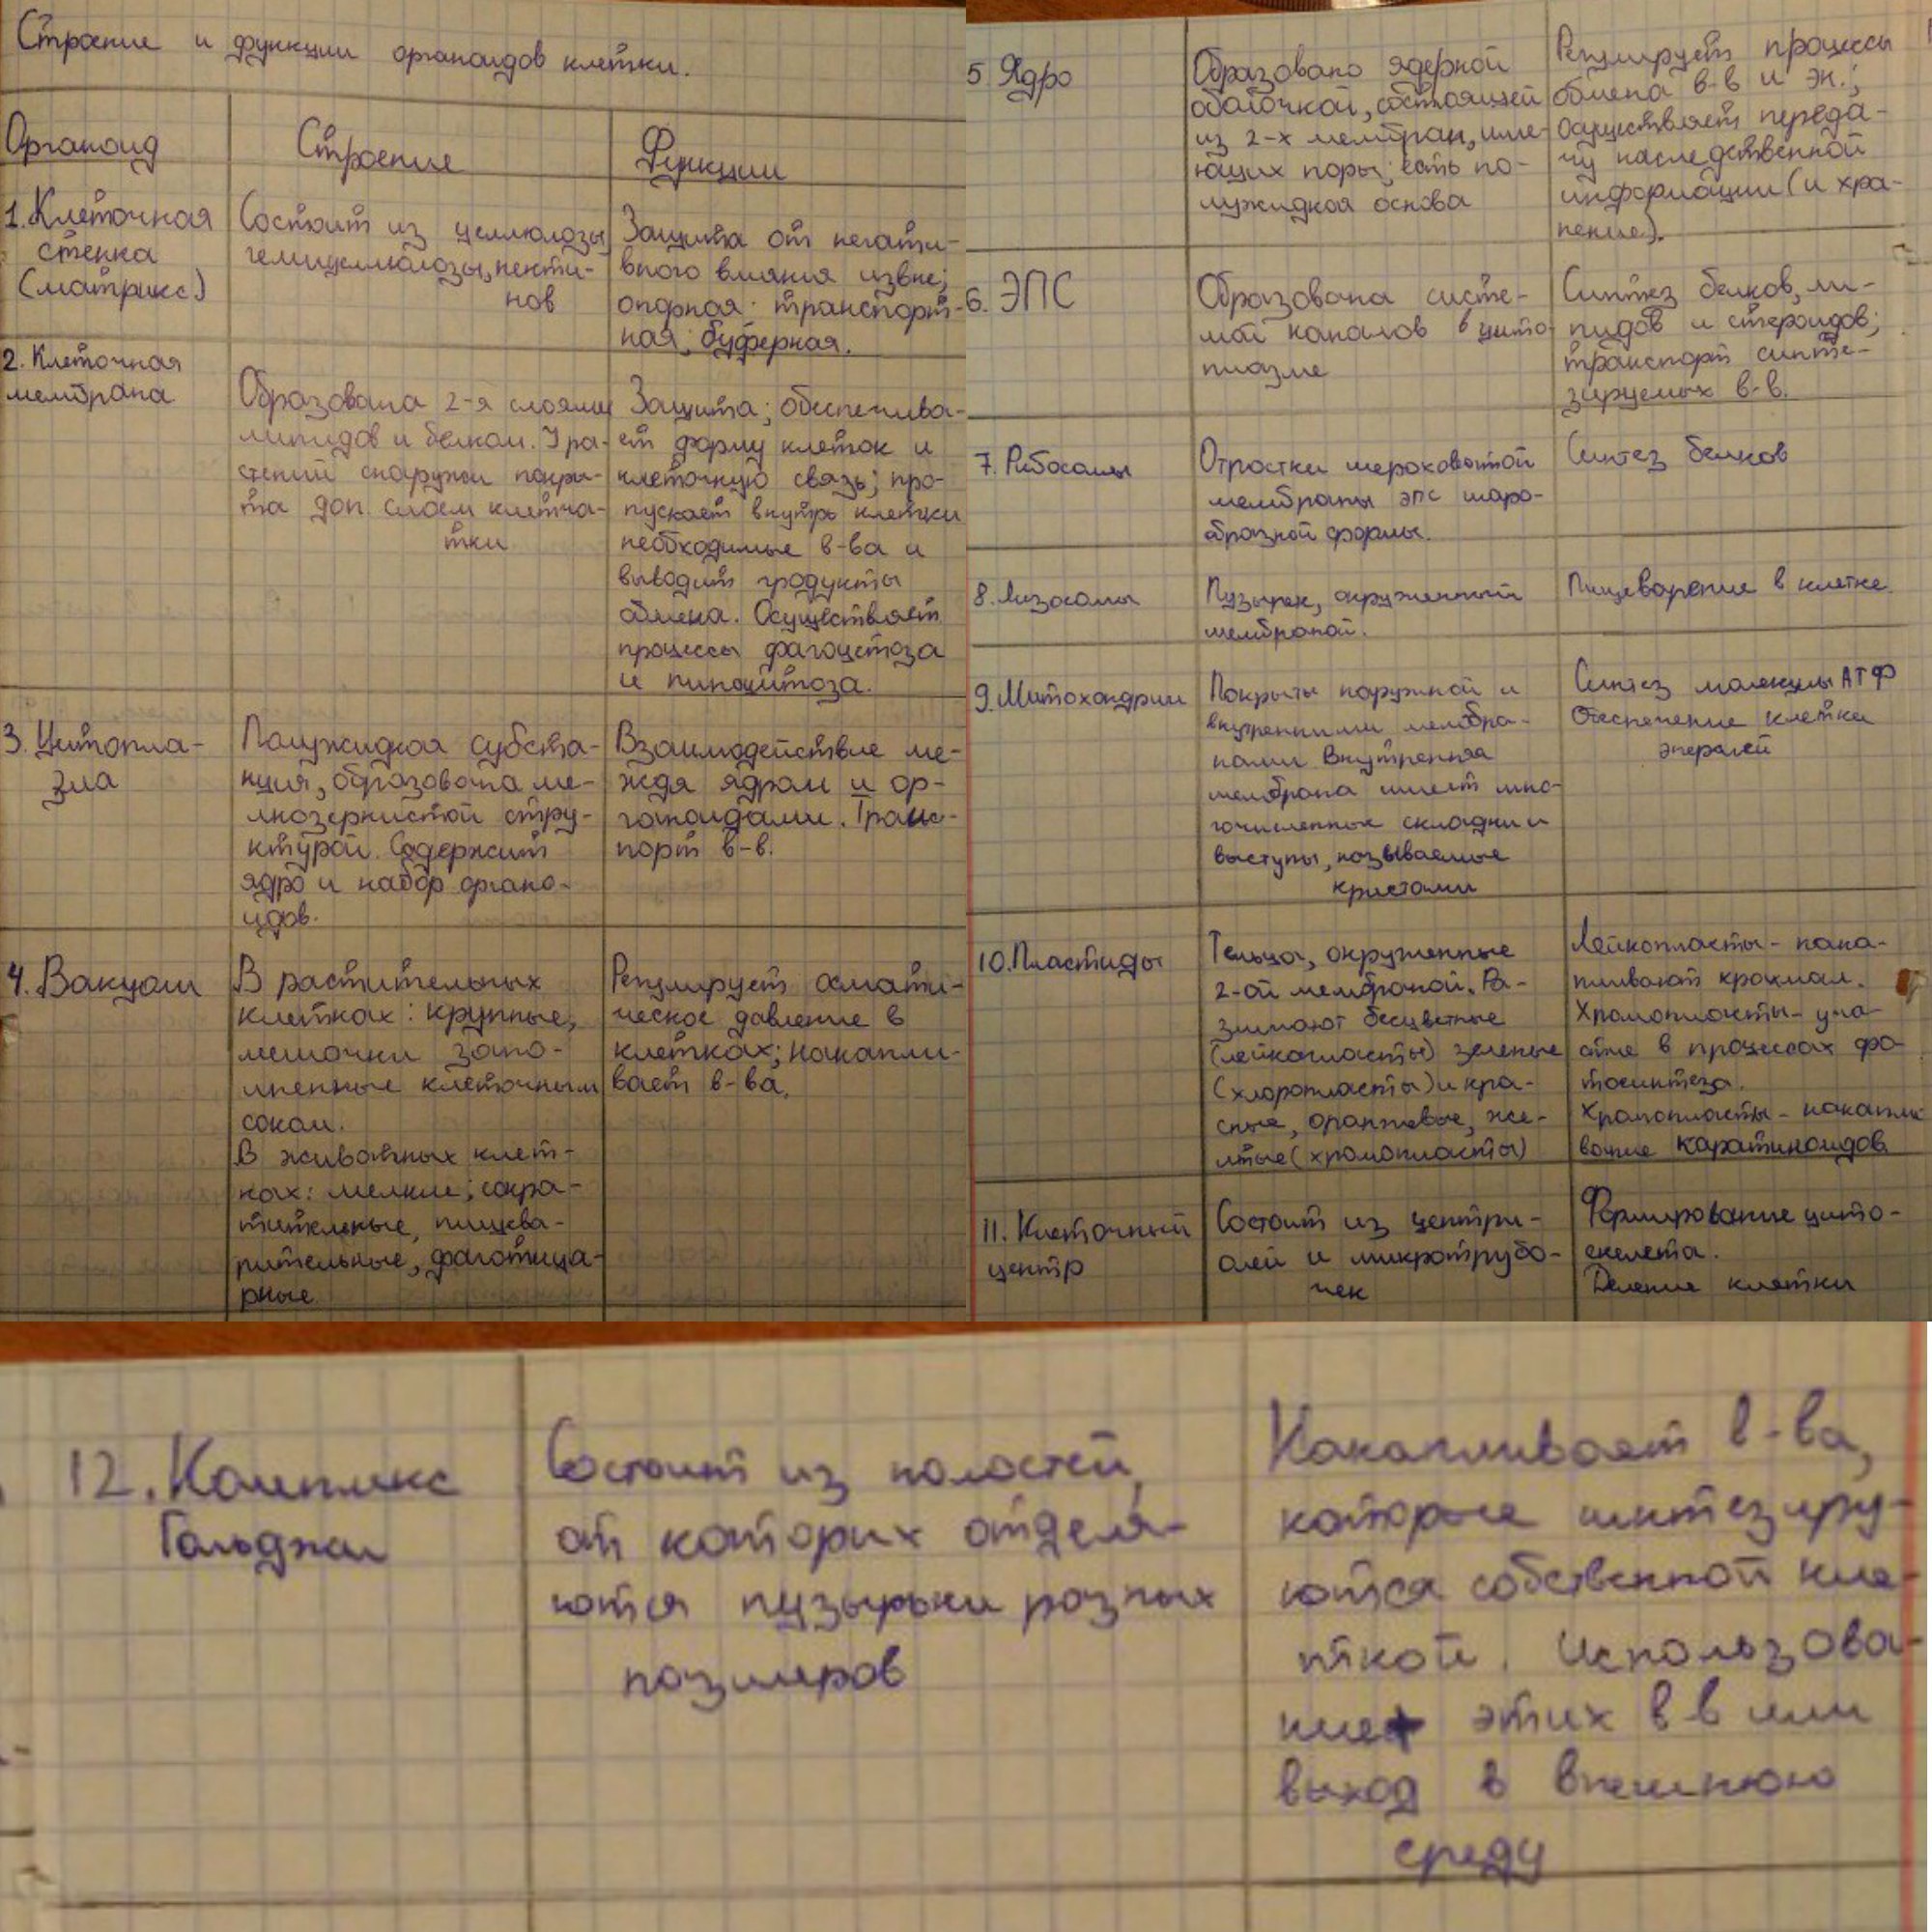 Строение и функции органоидов клетки.
Органоид
Строение
Функции
1. Клеточная
стенка
(матрикс)
Состоит из целлюлозы
гемицеллюлозы, пекти-
нов
Защита от негати-
вного влияния извне;
опорная; транспорт-
ная; буферная.
2. Клеточная
мембрана
Образована 2-я слоями
липидов и белком. У ра-
стений снаружи покры-
та доп. слоем клетча-
тки
Защита; обеспечива-
ет форму клеток и
клеточную связь; про-
пускает внутрь клетки
необходимые в-ва и
выводит продукты
обмена. Осуществляет
процессы фагоцитоза
и пиноцитоза.
3. Цитопла-
зма
Полужидкая субста-
нция, образована ме-
лкозернистой стру-
ктурой. Содержит
ядро и набор органо-
идов.
Взаимодействие ме-
ждя ядром и ор-
ганоидами. Транс-
порт в-в.
4. Вакуоли
В растительных
клетках: крупные,
мешочки запо-
лненные клеточным
соком.
В животных клет-
ках: мелкие; сокра-
тительные, пищева-
рительные, фагоцита-
рные
Регулирует осмоти-
ческое давление в
клетках; накапли-
вает в-ва.
5. Ядро
Образовано ядерной
оболочкой, состоящей
из 2-х мембран, име-
ющих поры; есть по-
лужидкая основа
Регулирует процессы
обмена в-в и эн.;
Осуществляет переда-
чу наследственной
информации (и хра-
нение).
6. ЭПС
Образована систе-
мой каналов в цито-
плазме
Синтез белков, ли-
пидов и стероидов;
транспорт синте-
зируемых в-в.
7. Рибосомы
Отростки шероховатой
мембраны эпс шаро-
образной формы.
Синтез белков
8. Лизосомы
Пузырек, окруженный
мембраной.
Пищеварение в клетке.
9. Митохондрии
Покрыты наружной и
внутренними мембра-
нами. Внутренняя
мембрана имеет мно-
гочисленные складки и
выступы, называемые
кристами
Синтез молекулы АТФ
Обеспечение клетки
энергией
10. Пластиды
Тельца, окруженные
2-ой мембраной. Ра-
зличают бесцветные
(лейкопласты) зеленые
(хлоропласты) и кра-
сные, оранжевые, же-
лтые (хромопласты)
Лейкопласты - нака-
пливают крахмал.
Хромопласты - уча-
стие в процессах фо-
тосинтеза.
Хромопласты - накапли
вание каратиноидов
11. Клеточный
центр
Состоит из центри-
олей и микротрубо-
чек
Формирование цито-
скелета.
Деление клетки
12. Комплекс
Гольджи
Состоит из полостей,
от которых отделя-
ются пузырьки разных
размеров
Накапливает в-ва,
которые синтезиру-
ются собственной кле-
ткой. Использова-
ние этих в-в или
выход в внешнюю
среду